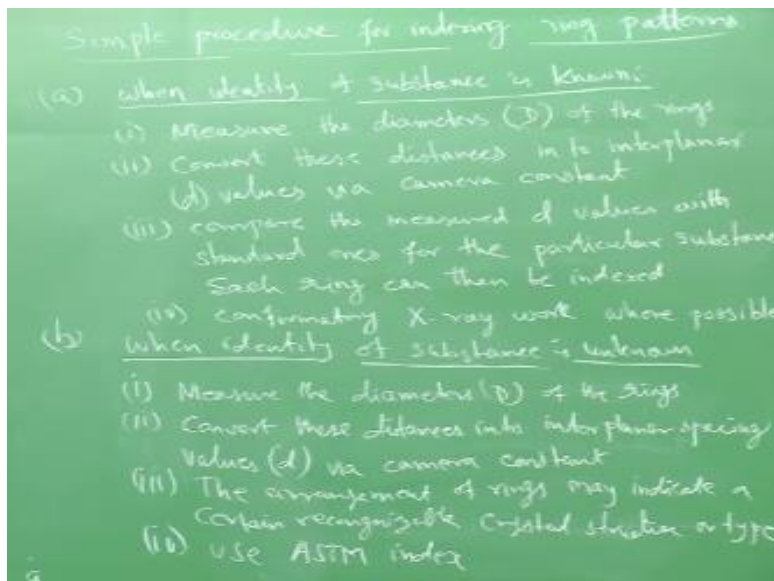 Simple procedure for indexing ring patterns
(a) when identity of substance is known:
(i) Measure the diameters (D) of the rings
(ii) Convert these distances in to interplanar
(d) values via camera constant
(iii) compare the measured d values with
standard ones for the particular substance
Each ring can then be indexed
(iv) confirmatory X-ray work where possible
(b) when identity of substance is unknown
(i) Measure the diameters (D) of the rings
(ii) Convert these distances into interplanar spacing
values (d) via camera constant
(iii) The arrangement of rings may indicate a
certain recognizable crystal structure or type
(iv) use ASTM index